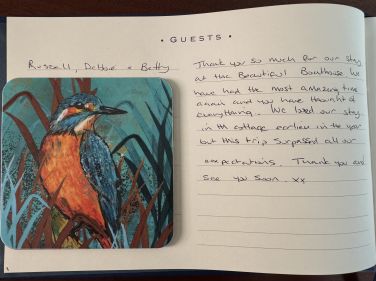 • GUESTS •
Russell, Debbie & Betty
Thank you so much for our stay
at the Beautiful Boathouse we
have had the most amazing time
again and you have thought of
everything. We loved our stay
in the cottage earlier in the year
but this trip surpassed all our
expectations. Thank you and
see you soon. xx